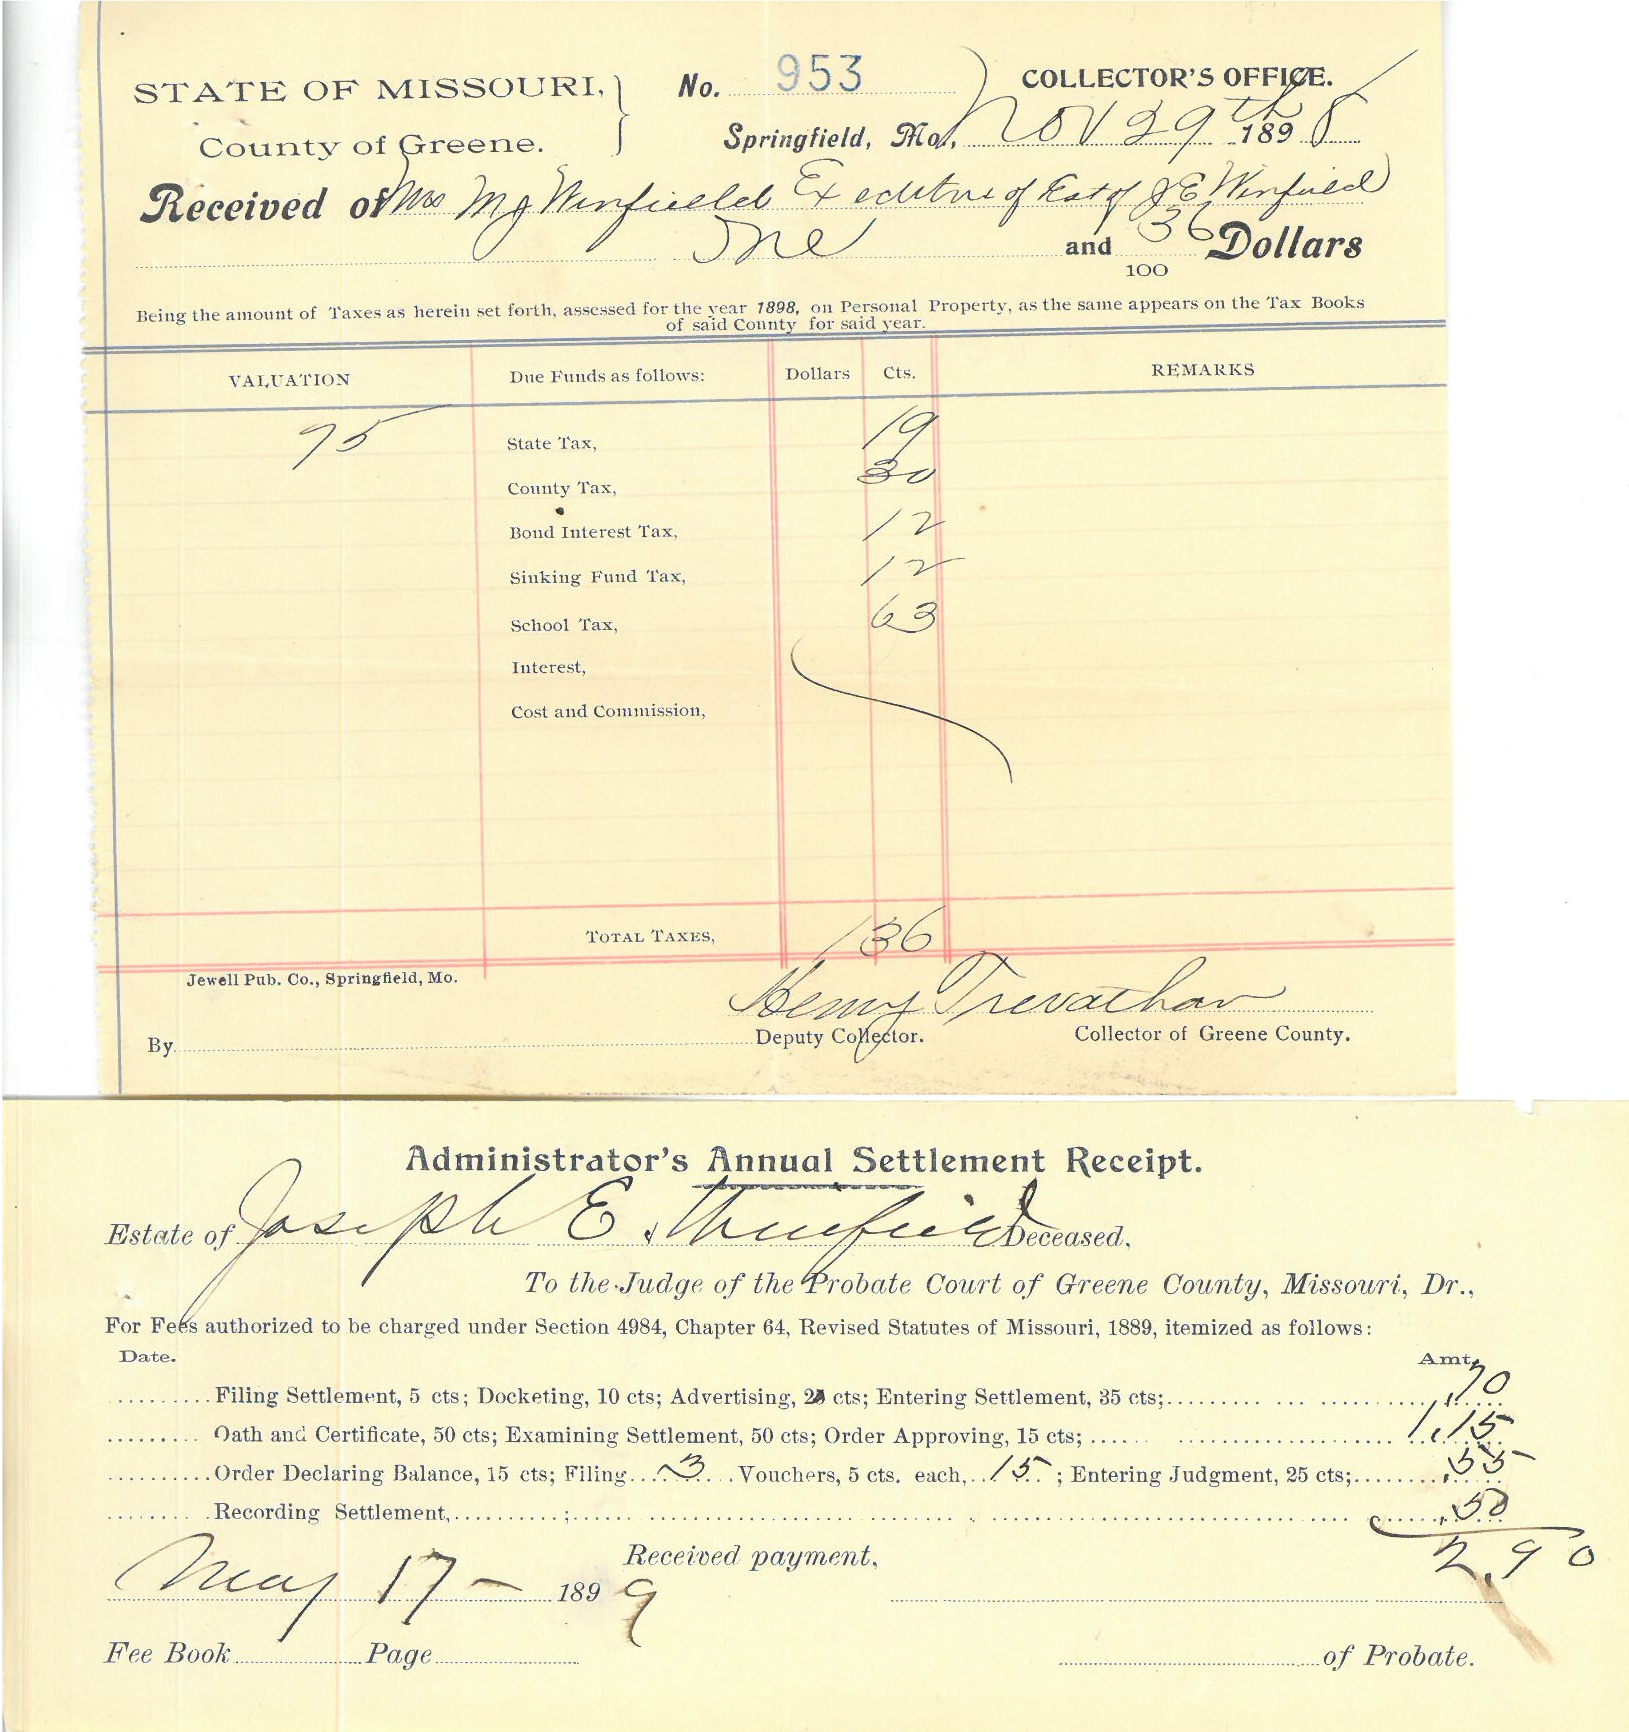 STATE OF MISSOURI, } No. 953 COLLECTOR'S OFFICE.
County of Greene. Springfield, Mo., Nov 29th 1898
Received of Mrs M J Winfield Executrix of Est of J E Winfield
One and 36/100 Dollars
Being the amount of Taxes as herein set forth, assessed for the year 1898, on Personal Property, as the same appears on the Tax Books
of said County for said year.
VALUATION Due Funds as follows: Dollars Cts. REMARKS
75 State Tax, 19
County Tax, 30
Bond Interest Tax, 12
Sinking Fund Tax, 12
School Tax, 63
Interest,
Cost and Commission,
TOTAL TAXES, 1 36
Jewell Pub. Co., Springfield, Mo.
Henry Trevathan
By Deputy Collector. Collector of Greene County.
Administrator's Annual Settlement Receipt.
Estate of Joseph E. Winfield Deceased,
To the Judge of the Probate Court of Greene County, Missouri, Dr.,
For Fees authorized to be charged under Section 4984, Chapter 64, Revised Statutes of Missouri, 1889, itemized as follows:
Date. Amt.
Filing Settlement, 5 cts; Docketing, 10 cts; Advertising, 20 cts; Entering Settlement, 35 cts; .70
Oath and Certificate, 50 cts; Examining Settlement, 50 cts; Order Approving, 15 cts; 1.15
Order Declaring Balance, 15 cts; Filing 3 Vouchers, 5 cts. each, 15 ; Entering Judgment, 25 cts; .55
Recording Settlement, ; .50
Received payment, 2.90
May 17 - 1899
Fee Book Page of Probate.